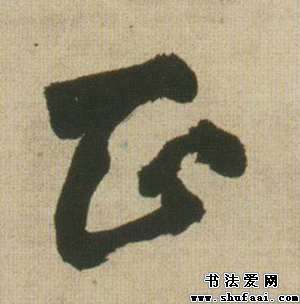 正
书法爱网
www.shufaai.com